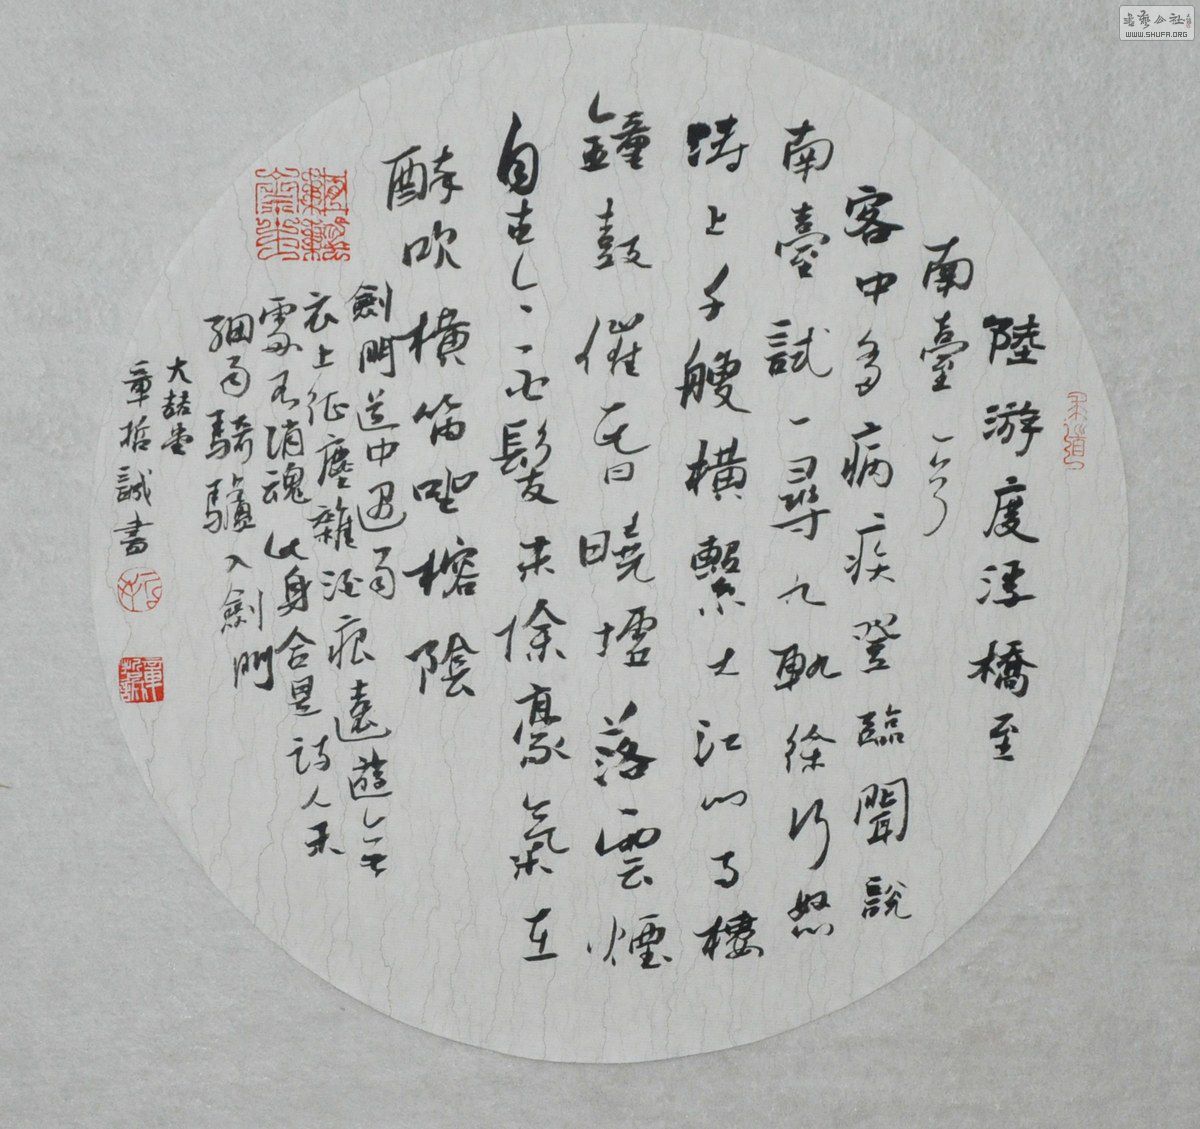 陸游度浮橋至
南臺一首
客中多病疾登臨聞說
南臺試一尋九軌徐行怒
濤上千艘橫繫大江心寺樓
鐘鼓催昏曉墟落雲煙
自古今白髮未除豪氣在
醉吹橫笛坐榕陰
劍門道中遇雨
衣上征塵雜酒痕遠遊無
處不消魂此身合是詩人未
細雨騎驢入劍門
大喆堂
章哲誠書
書藝公社
WWW.SHUFA.ORG